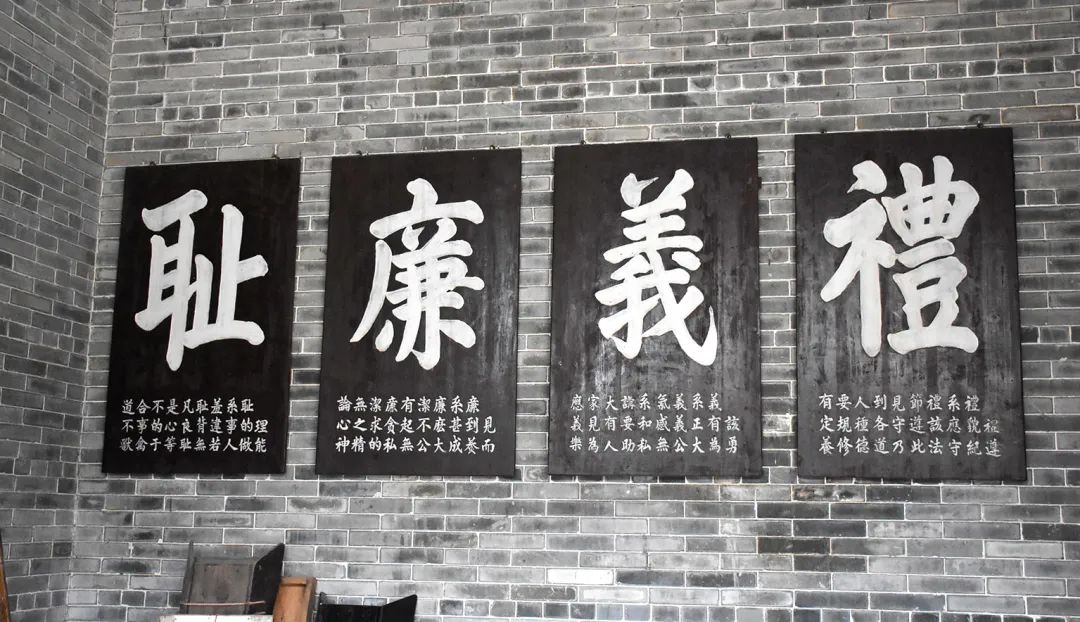 禮
禮系禮節見到人要有
禮貌應該遵守各種規定
遵紀守法此乃道德修養
義
義系義氣系講大家應
該有正義感和要有見義
勇為大公無私助人為樂
廉
廉系廉潔有廉潔無論
見到甚麽不起貪求之心
而養成大公無私的精神
耻
耻系羞耻凡是不合道
理的事違背良心的事不
能做人若無耻等于禽獸